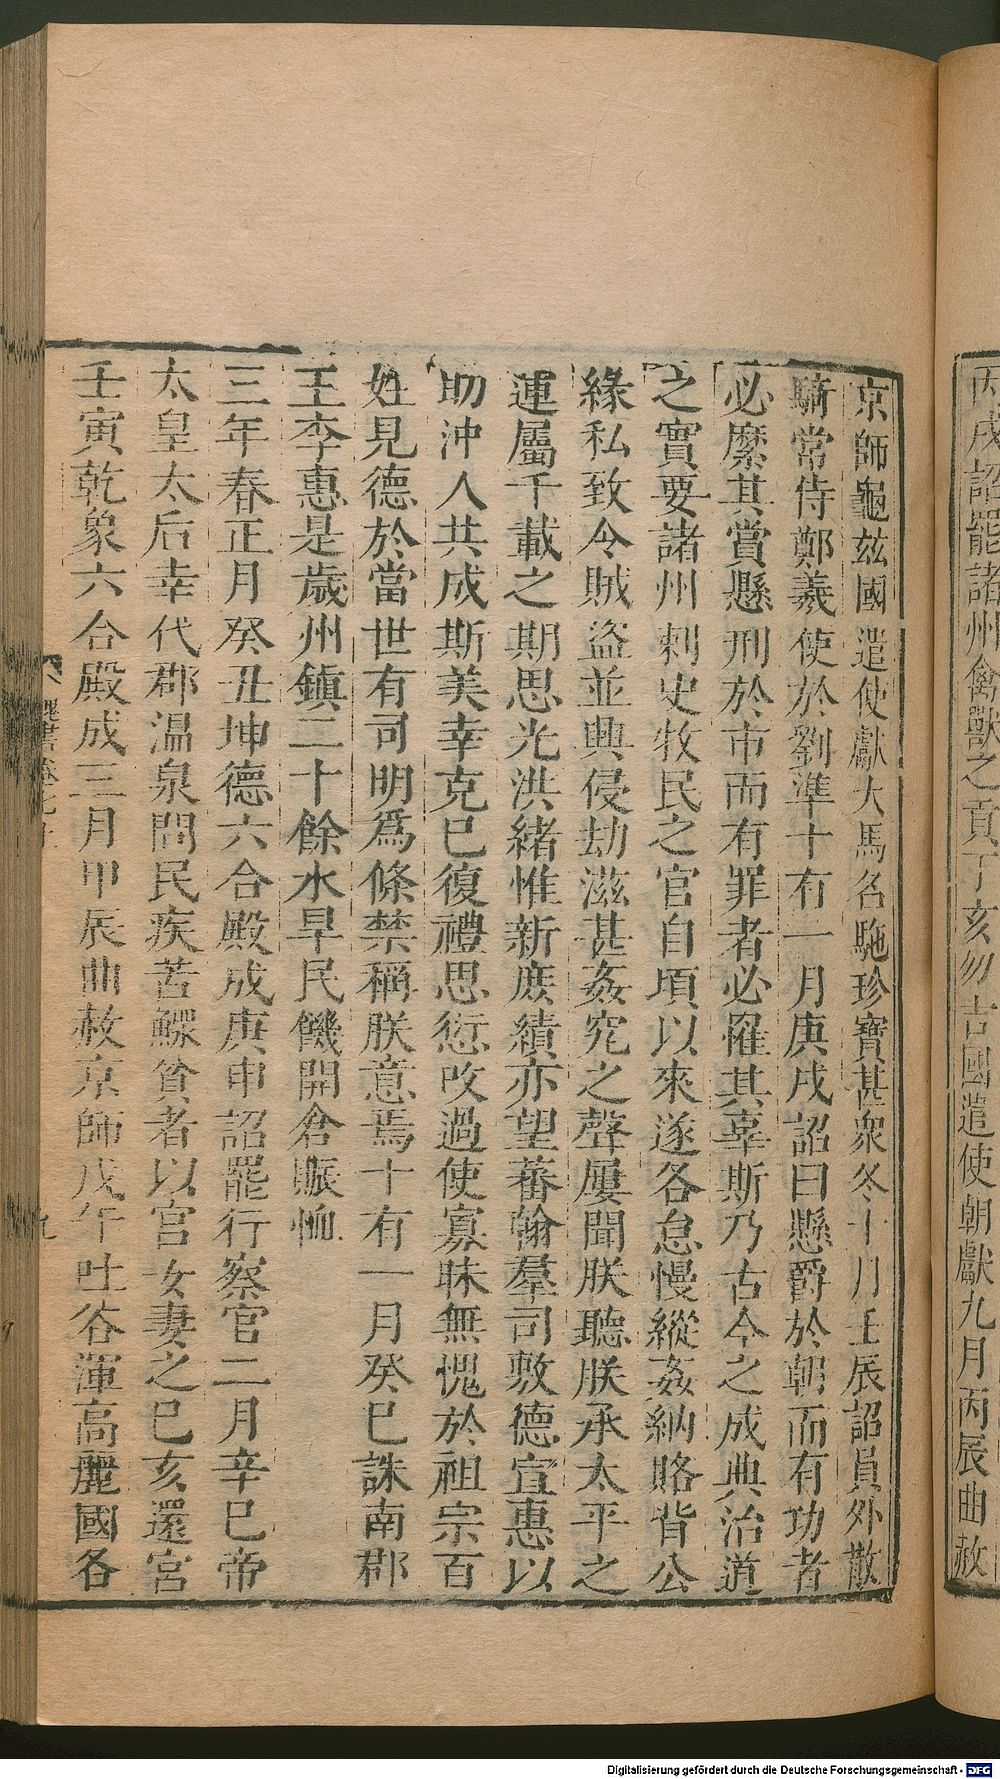 丙戌詔罷諸州禽獸之貢丁亥勿吉國遣使朝獻九月丙辰曲赦
京師龜兹國遣使獻大馬名駞珍寶甚衆冬十月壬辰詔員外散
騎常侍鄭羲使於劉準十有一月庚戌詔曰懸爵於朝而有功者
必縻其賞懸刑於市而有罪者必罹其辜斯乃古今之成典治道
之實要諸州刺史牧民之官自頃以來遂各怠慢縱姦納賂背公
緣私致令賊盗並興侵劫滋甚姦宄之聲屢聞朕聽朕承太平之
運屬千載之期思光洪緒惟新庶績亦望蕃翰羣司敷德宣惠以
助沖人共成斯美幸克已復禮思愆改過使寡昧無愧於祖宗百
姓見德於當世有司明爲條禁稱朕意焉十有一月癸巳誅南郡
王李惠是歲州鎮二十餘水旱民饑開倉賑恤
三年春正月癸丑坤德六合殿成庚申詔罷行察官二月辛巳帝
太皇太后幸代郡温泉問民疾苦鰥貧者以宫女妻之已亥還宫
壬寅乾象六合殿成三月甲辰曲赦京師戊午吐谷渾高麗國各
九
Digitalisierung gefördert durch die Deutsche Forschungsgemeinschaft - DFG